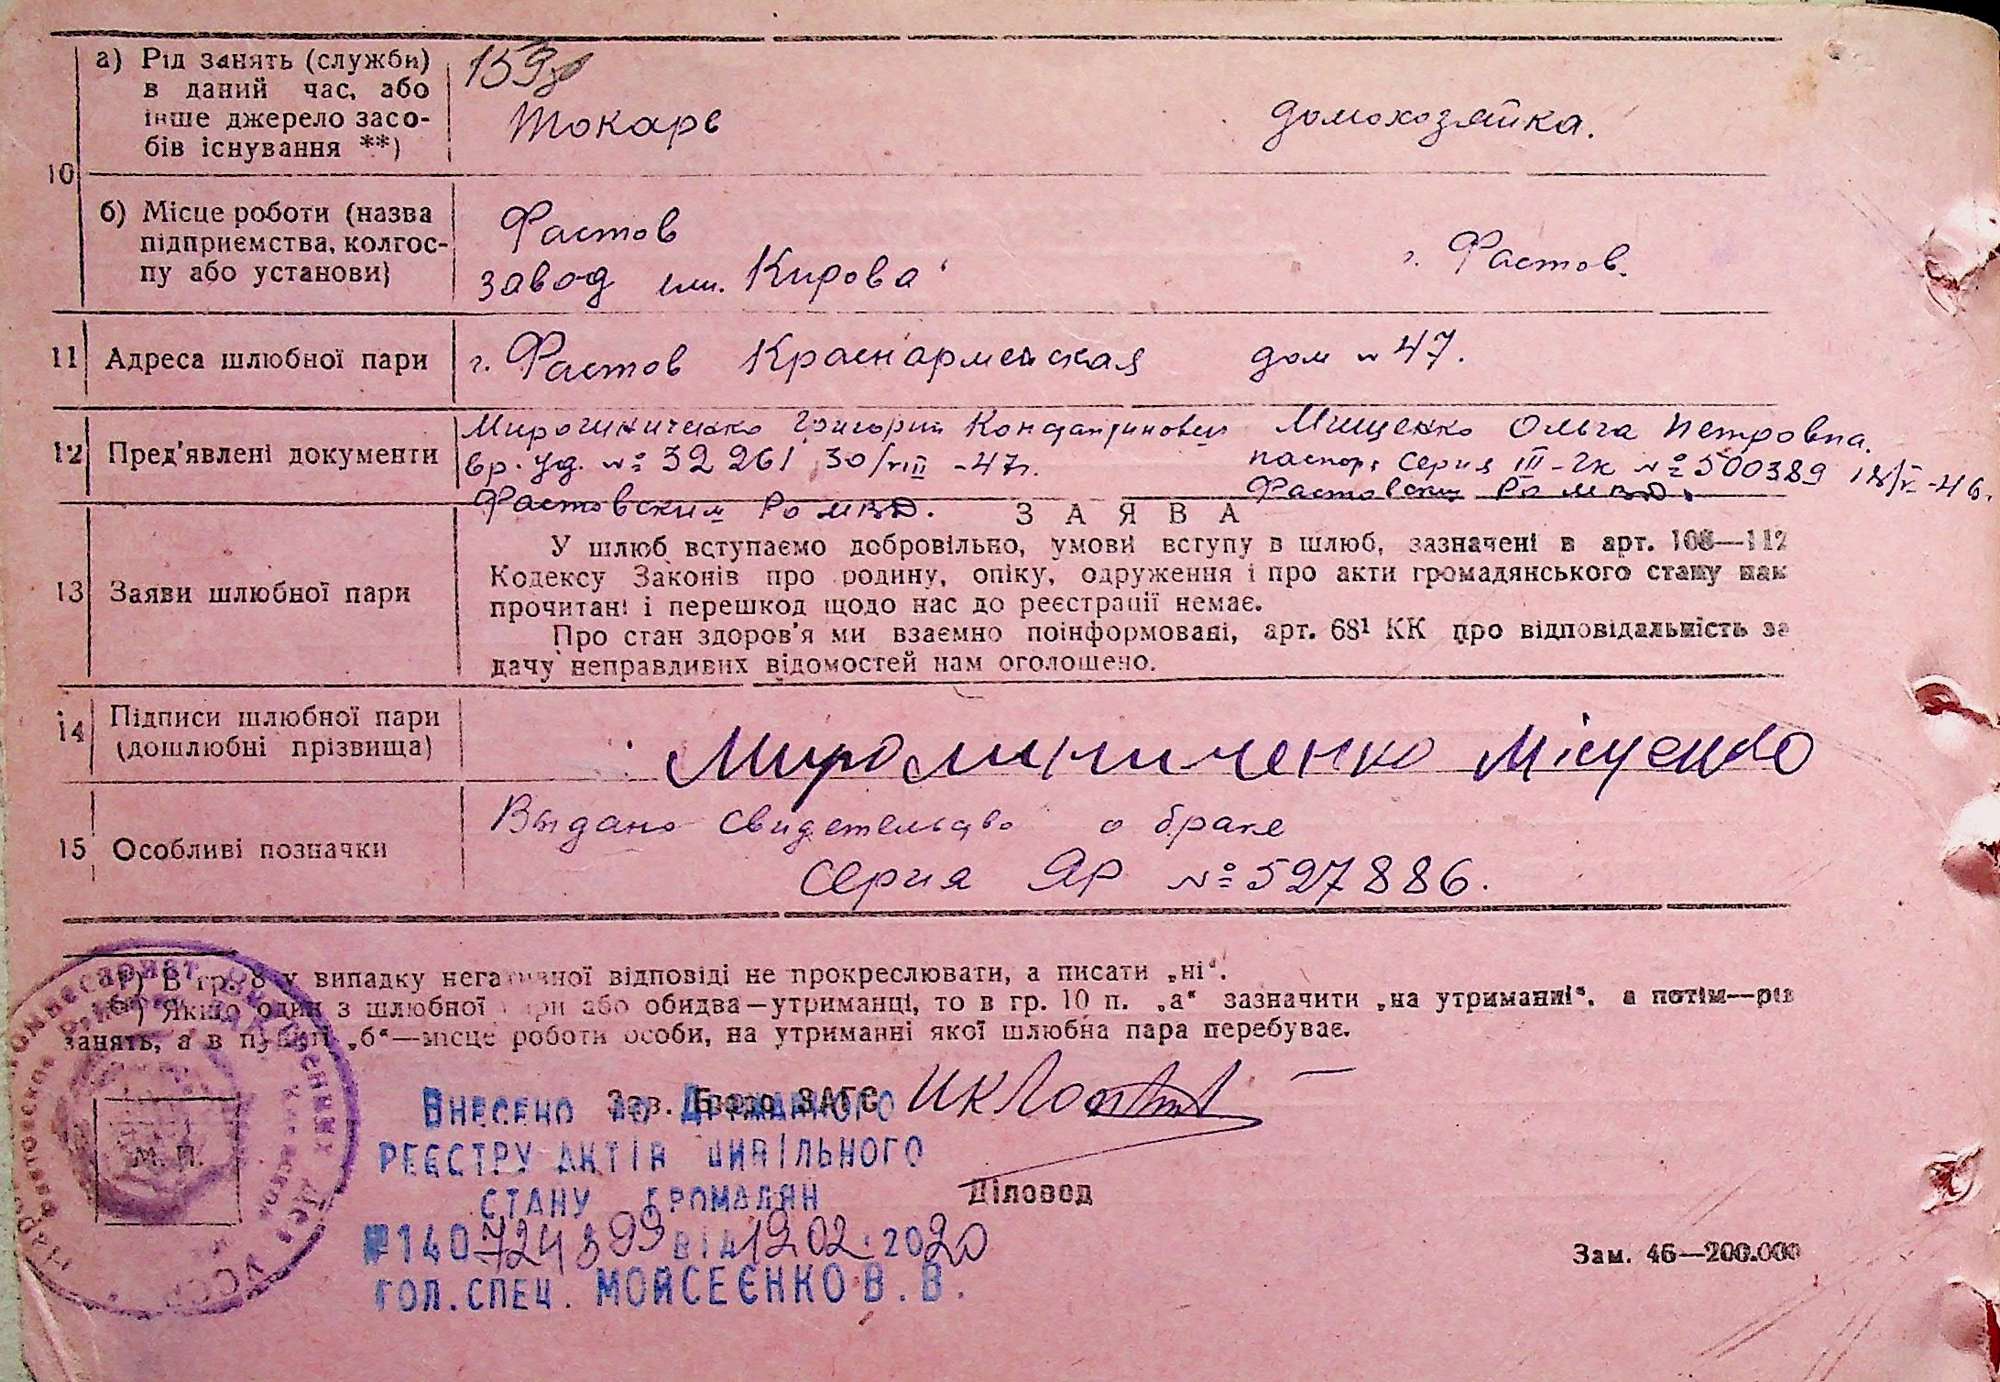 10
а) Рід занять (служби)
в даний час, або
інше джерело засо-
бів існування **)
159
Токарь
домохозяйка.
б) Місце роботи (назва
підприємства, колгос-
пу або установи)
Фастов
завод им. Кирова
г. Фастов.
11 Адреса шлюбної пари
г. Фастов Краснармейская дом № 47.
12 Пред'явлені документи
Григорий
вр. уд. № 32261 30/VIII -47г.
Фастовским РО МВД.
Мищенко Ольга Петровна.
паспорт серия III-ГК № 500389
Фастовским РО МВД.
13 Заяви шлюбної пари
ЗАЯВА
У шлюб вступаємо добровільно, умови вступу в шлюб, зазначені в арт. 108—112
Кодексу Законів про родину, опіку, одруження і про акти громадянського стану нам
прочитані і перешкод щодо нас до реєстрації немає.
Про стан здоров'я ми взаємно поінформовані, арт. 68¹ КК про відповідальність за
дачу неправдивих відомостей нам оголошено.
14 Підписи шлюбної пари
(дошлюбні прізвища)
Міщенко
15 Особливі позначки
Выдано свидетельство о браке
серия ЯР № 527886.
*) В гр. 8 у випадку негативної відповіді не прокреслювати, а писати „ні“.
**) Якщо один з шлюбної пари або обидва—утриманці, то в гр. 10 п. „а“ зазначити „на утриманні“, а потім—рід
занять, а в пункті „б“—місце роботи особи, на утриманні якої шлюбна пара перебуває.
Зав. Бюро ЗАГС
М. П.
Внесено до Державного
реєстру актів цивільного
стану громадян
№ 140 724 399 від 19.02.2020
гол. спец. Мойсеєнко В. В.
Діловод
Зам. 46—200.000